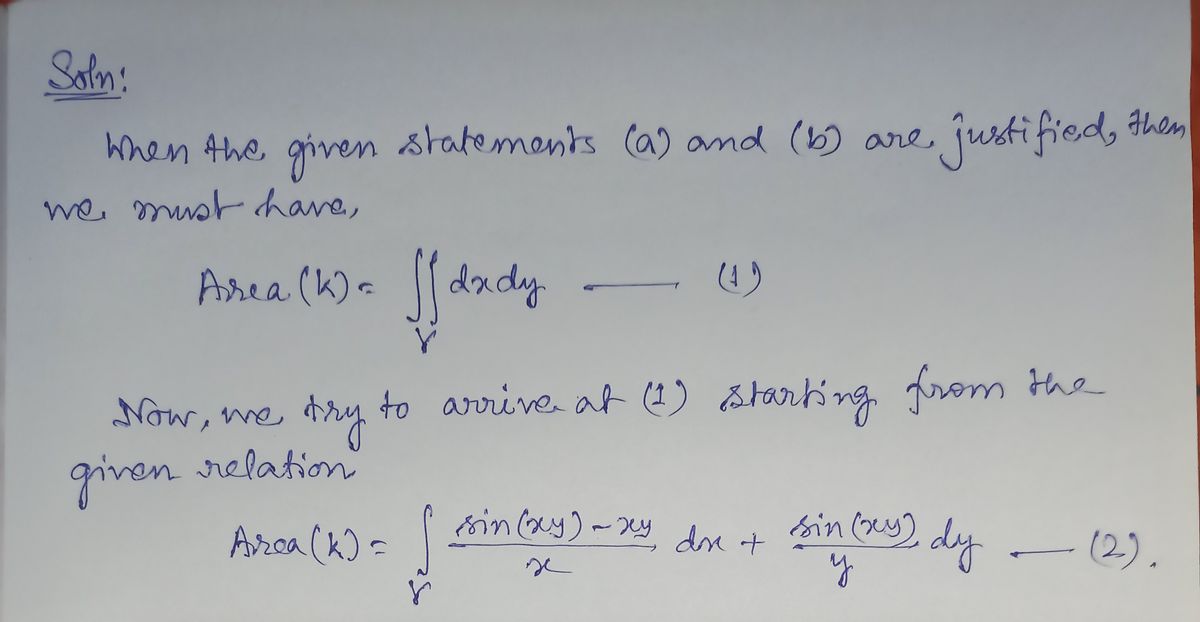 Soln:
When the given statements (a) and (b) are justified, then
we must have,
Area (k) = ∬_γ dxdy —— (1)
Now, we try to arrive at (1) starting from the
given relation
Area (k) = ∫_γ (sin(xy) - xy)/x dx + sin(xy)/y dy — (2).